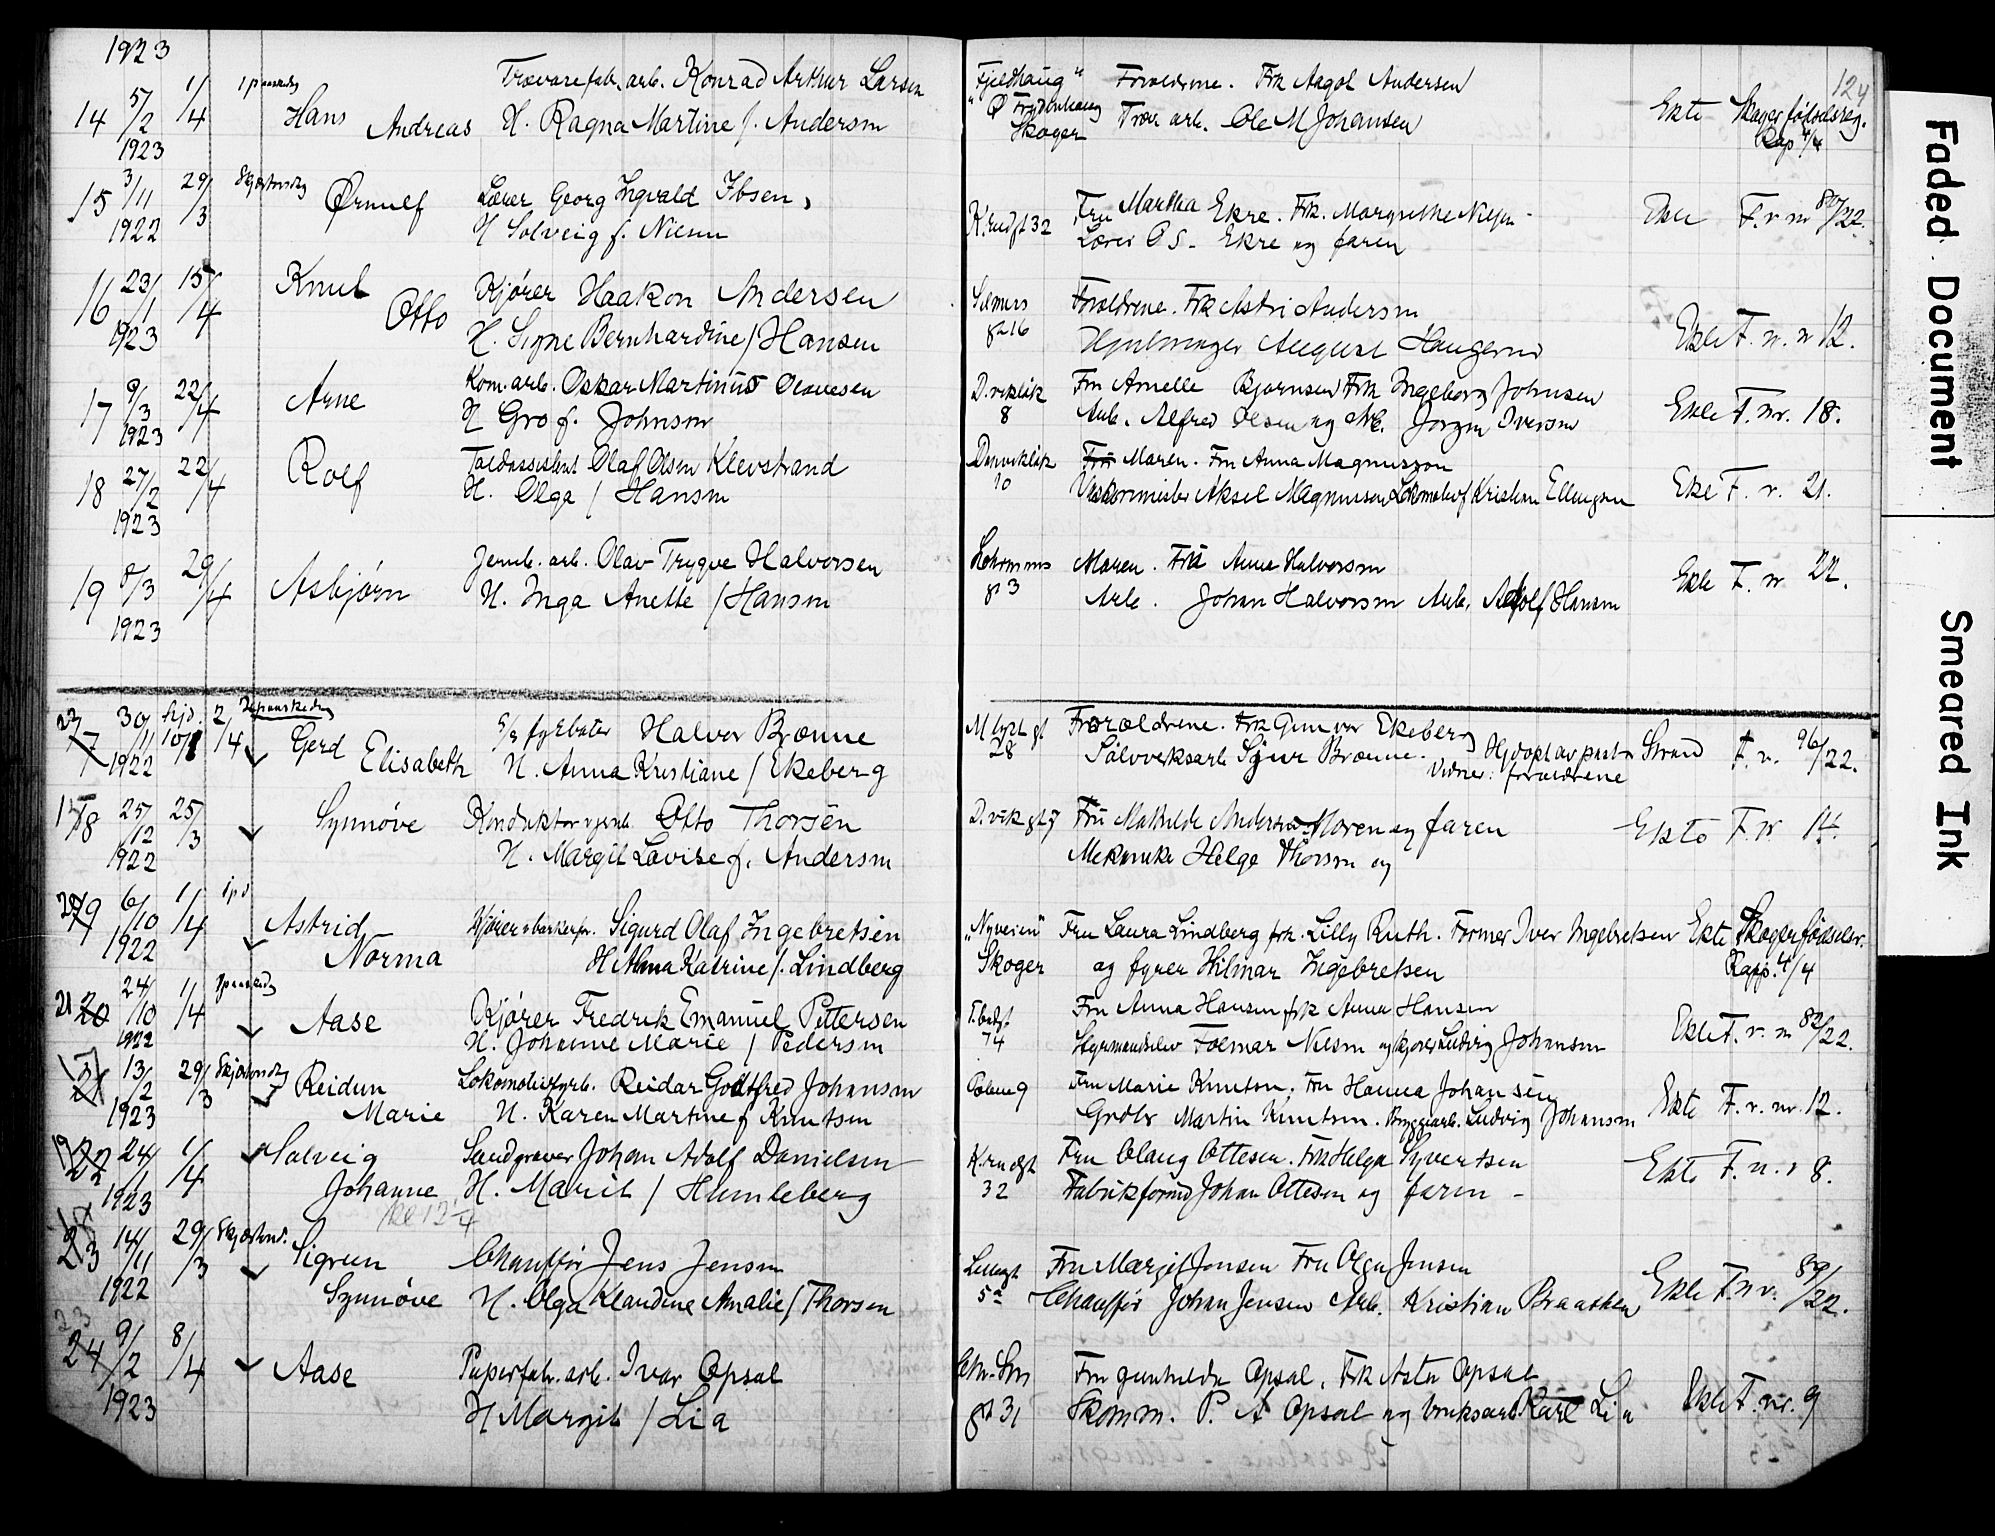 1923
124
14 5/2 1923 1/4 Hans Andreas
Trævarefabr. arb. Konrad Arthur Larsen
H. Ragna Martine f. Andersen
"Fjeldhaug"
Skoger
Forældrene. Frk Aagot Andersen
Træv arb. Ole M Johansen
Ekte Skoger fødselsreg.
Rap 4/4
15 3/11 1922 29/3 Skjærtorsdag Ørnulf
Lærer Georg Ingvald Ibsen,
H Solveig f. Nilsen
K.rudgt 32
Fru Martha Ekre. Frk. Margrethe Nilsen
Lærer O S. Ekre og faren
Ekte F. v nr 80/22.
16 23/1 1923 15/4 Knut Otto
Kjører Haakon Andersen
H. Signe Bernhardine f Hansen
gt 16
Forældrene. Frk Astri Andersen
August Haugerud
Ekte F. n. v 12.
17 9/3 1923 22/4 Arne
Kom. arb. Oskar Martinus Olavesen
H Gro f. Johnsen
8
Fru Amelie Bjørnsen Frk Ingeborg Johnsen
Arb. Alfred Olsen og Arb. Jørgen Iversen
Ekte F. nr. 18.
18 27/2 1923 22/4 Rolf
Toldassistent Olaf Olsen Klevstrand
H. Olga f Hansen
10
Moren. Fru Anna Magnusson
Aksel Magnusson Lokomotivf Kristian Ellingsen
Ekte F. v. 21.
19 8/3 1923 29/4 Asbjørn
Jernb. arb. Olav Trygve Halvorsen
H. Inga Anette f Hansen
gt 3
Moren. Fru Anna Halvorsen
Arb. Johan Halvorsen Arb. Adolf Hansen
Ekte F. nr. 22.
17 30/11 1922 hjd. 10/1 2/4 2 paaskedag Gerd Elisabeth
S/s fyrbøter Halvor Brænne
H. Anna Kristiane f Ekeberg
28
Forældrene. Frk Gunvor Ekeberg
Sølvverksarb Sigur Brænne. Hjdøpt av pastor Strand
Vidner: forældrene
F. v. 96/22.
18 25/12 1922 25/3 Synnøve
Konduktør v jernb. Otto Thorsen
H. Margit Lovise f. Andersen
D. vik gt 7
Fru Mathilde Andersen Moren og faren
Mekanike Helge Thorsen og
Ekte F. v. 14.
19 6/10 1922 1/4 1 p d Astrid Norma
Kjører v barkerfor. Sigurd Olaf Ingebretsen
H Alma Katrine f. Lindberg
"Nyveien"
Skoger
Fru Laura Lindberg frk. Lilly Ruth. Former Iver Ingebretsen
og fyrer Hilmar Ingebretsen
Ekte Skoger fødselsr.
Rapp. 4/4
21 20 24/10 1922 1/4 Aase
Kjører Fredrik Emanuel Pettersen
H. Johanne Marie f Pedersen
74
Fru Anna Hansen frk Anna Hansen
Styrmandselev Folmar Nilsen og kjører Ludvig Johansen
Ekte F. v. nr 82/22.
21 13/2 1923 29/3 Skjærtorsdag Reidun Marie
Lokomotivfyrb. Reidar Godtfred Johansen
H. Karen Martine f Knutsen
Fru Marie Knutsen. Fru Hanna Johansen
Martin Knutsen. Byggearb. Ludvig Johansen
Ekte F. v. nr. 12.
22 24/1 1923 1/4 Solveig Johanne
Sandgraver Johan Adolf Danielsen
H. Marit f Humleberg
K.rudgt
32
Fru Olaug Ottesen. Frk Helga Syvertsen
Fabrikformd Johan Ottesen og faren
Ekte F. n. v 8.
23 14/11 1922 29/3 Skjærtorsd. Sigrun Synnøve
Chauffør Jens Jensen
H. Olga Klaudine Amalie f Thorsen
5a
Fru Margit Jensen Fru Olga Jensen
Chauffør Johan Jensen Arb. Kristian Braathen
Ekte F. n v. 89/22.
23
24 9/2 1923 8/4 Aase
Papirfabr. arb. Ivar Opsal
H Margit f Lia
gt 31
Fru Gunhilda Opsal. Frk Asta Opsal
Skom m. P. A Opsal og bruksarb Karl Lia
Ekte F. nr. 9
Faded Document
Smeared Ink